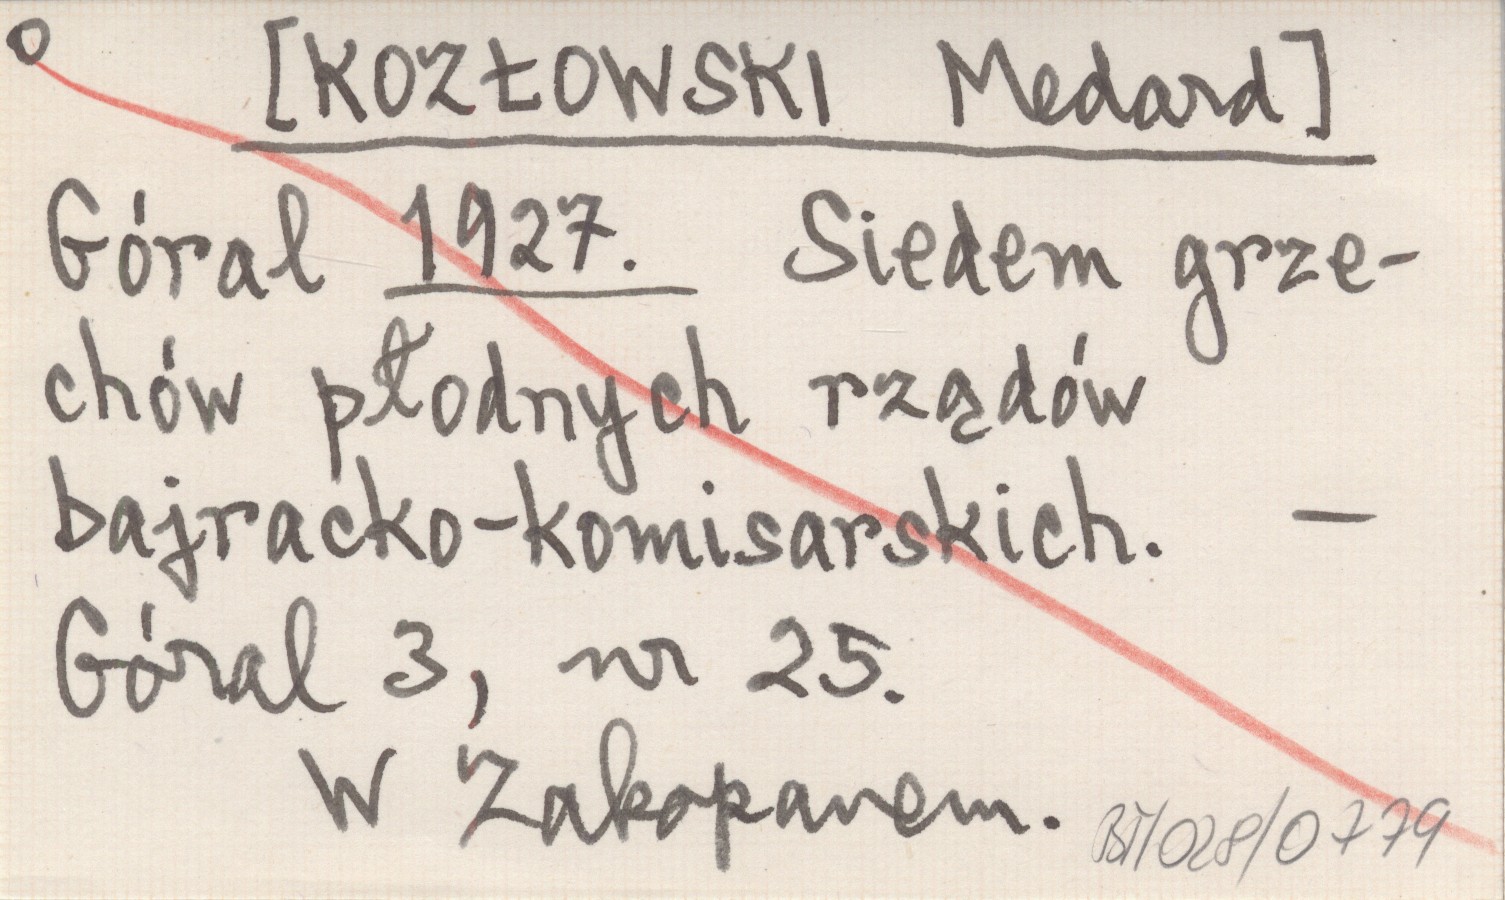 [KOZŁOWSKI Medard]
Góral 1927. Siedem grze-
chów płodnych rządów
bajracko-komisarskich. —
Góral 3, nr 25.
W Zakopanem.
BT/028/0779